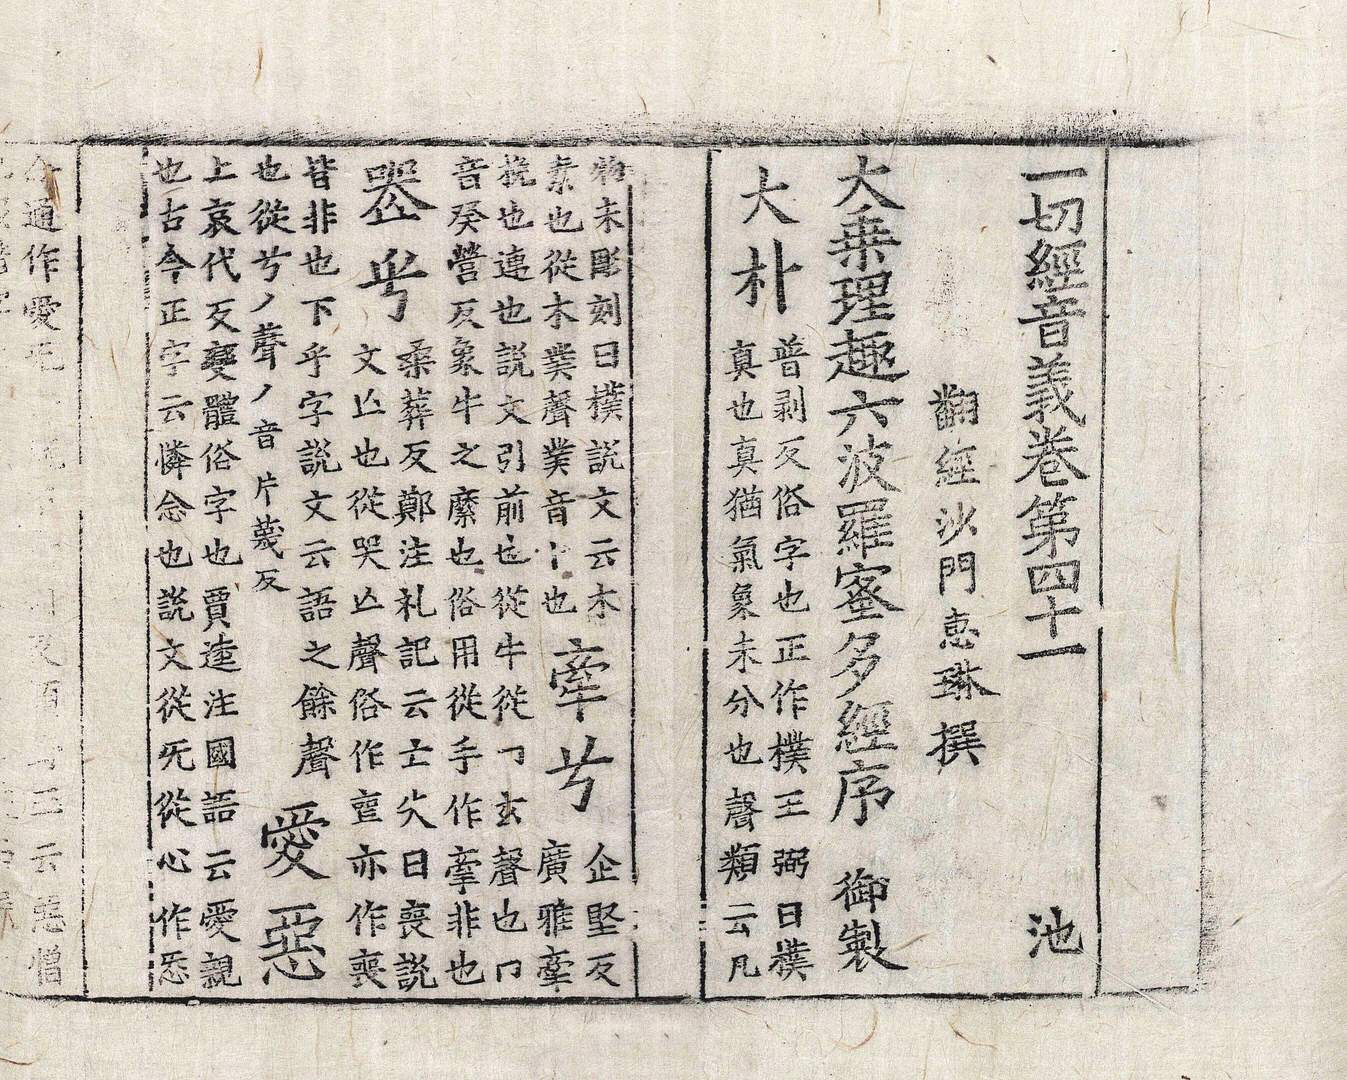 一切經音義卷第四十一 池
翻經沙門惠琳撰
大乘理趣六波羅蜜多經序 御製
大朴 普剥反俗字也正作樸王弼曰樸
真也真猶氣象未分也聲類云凡
物未彫刻曰樸説文云木
素也從木菐聲菐音卜也
牽兮 企堅反
廣雅牽
挽也連也説文引前也從牛從冂玄聲也冂
音癸營反象牛之縻也俗用從手作㧶非也
喪乎 桒葬反鄭注礼記云亡失曰喪説
文亾也從哭亾聲俗作䘮亦作喪
皆非也下乎字説文云語之餘聲
也從兮丿聲丿音片蔑反
愛惡
上哀代反變體俗字也賈逵注國語云愛親
也古今正字云憐念也説文從旡從心作㤅
今通作愛 云惡憎